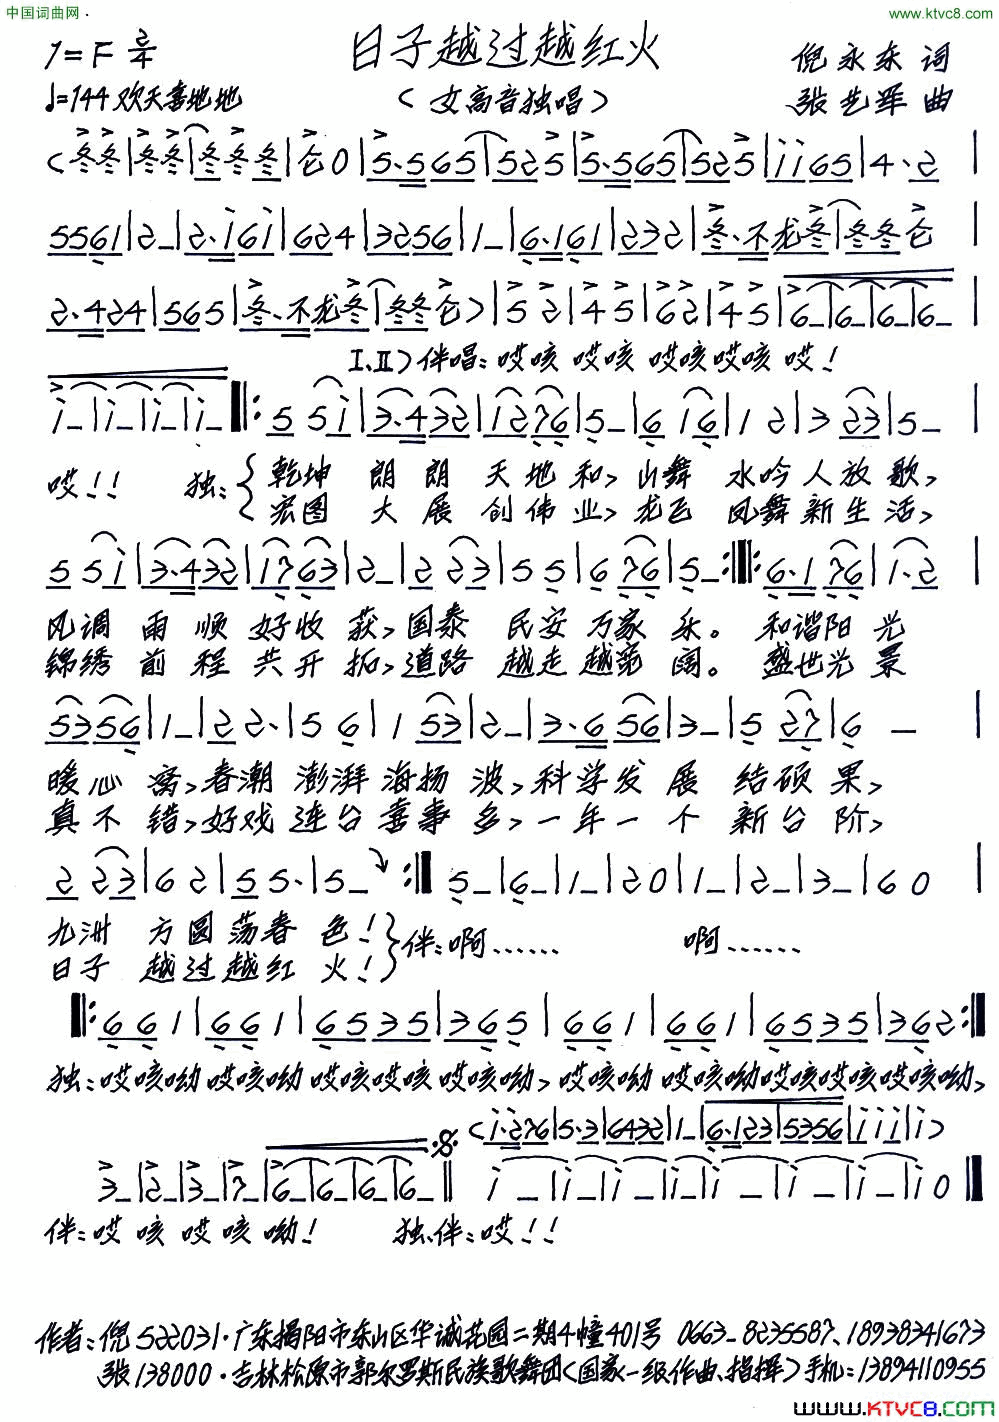 中国词曲网
www.ktvc8.com
1=F 2/4
日子越过越红火
倪永东 词
♩=144 欢天喜地地
(女高音独唱)
张艺军 曲
(冬冬|冬冬|冬冬冬|仑0|5·565|525|5·565|525|i i65|4·2|
5561|2–|2·i6i|624|3256|1–|6·161|232|冬·不龙冬|冬冬仑|
2·424|565|冬·不龙冬|冬冬仑>|5 2|4 5|6 2|4 5|6–|6–|6–|6–|
Ⅰ、Ⅱ)伴唱:哎咳 哎咳 哎咳哎咳 哎!
i–|i–|i–|i–‖:5 5i|3·432|1276|5–|6 16|1 2|3 23|5–|
哎!! 独:乾坤 朗朗 天地和,山舞 水吟人放歌,
宏图 大展 创伟业,龙飞 凤舞新生活,
5 5i|3·432|1763|2–|2 23|5 5|6 76|5–:‖:6·1 76|1·2|
风调 雨顺 好收获,国泰 民安万家 乐。 和谐阳 光
锦绣 前程 共开拓,道路 越走越宽 阔。 盛世光 景
5356|1–|2 2·|5 6|1 53|2–|3·6 56|3–|5 27|6 –
暖心 窝,春潮 澎湃 海扬 波,科学发 展 结硕 果,
真不 错,好戏 连台 喜事 多,一年一 个 新台 阶,
2 23|6 2|5 5·|5–:‖5–|6–|1–|20|1–|2–|3–|60|
九洲 方圆荡春 色! 伴:啊…… 啊……
日子 越过越红 火!
‖:661|661|6535|365|661|661|6535|362:‖
独:哎咳呦 哎咳呦 哎咳哎咳 哎咳呦,哎咳呦 哎咳呦哎咳哎咳哎咳呦,
(i·276|5·3|6432|1–|6·123|5356|i i i|i)
3–|2–|3–|7–|6–|6–|6–|6–‖i–|i–|i–|i–|i–|i–|i0‖
伴:哎 咳 哎 咳 呦! 独、伴:哎!!
作者:倪 522031·广东揭阳市东山区华诚花园二期4幢401号 0663–8235587、18938341673
张 138000·吉林松原市郭尔罗斯民族歌舞团(国家一级作曲、指挥)手机:13894110955
www.KTVC8.com